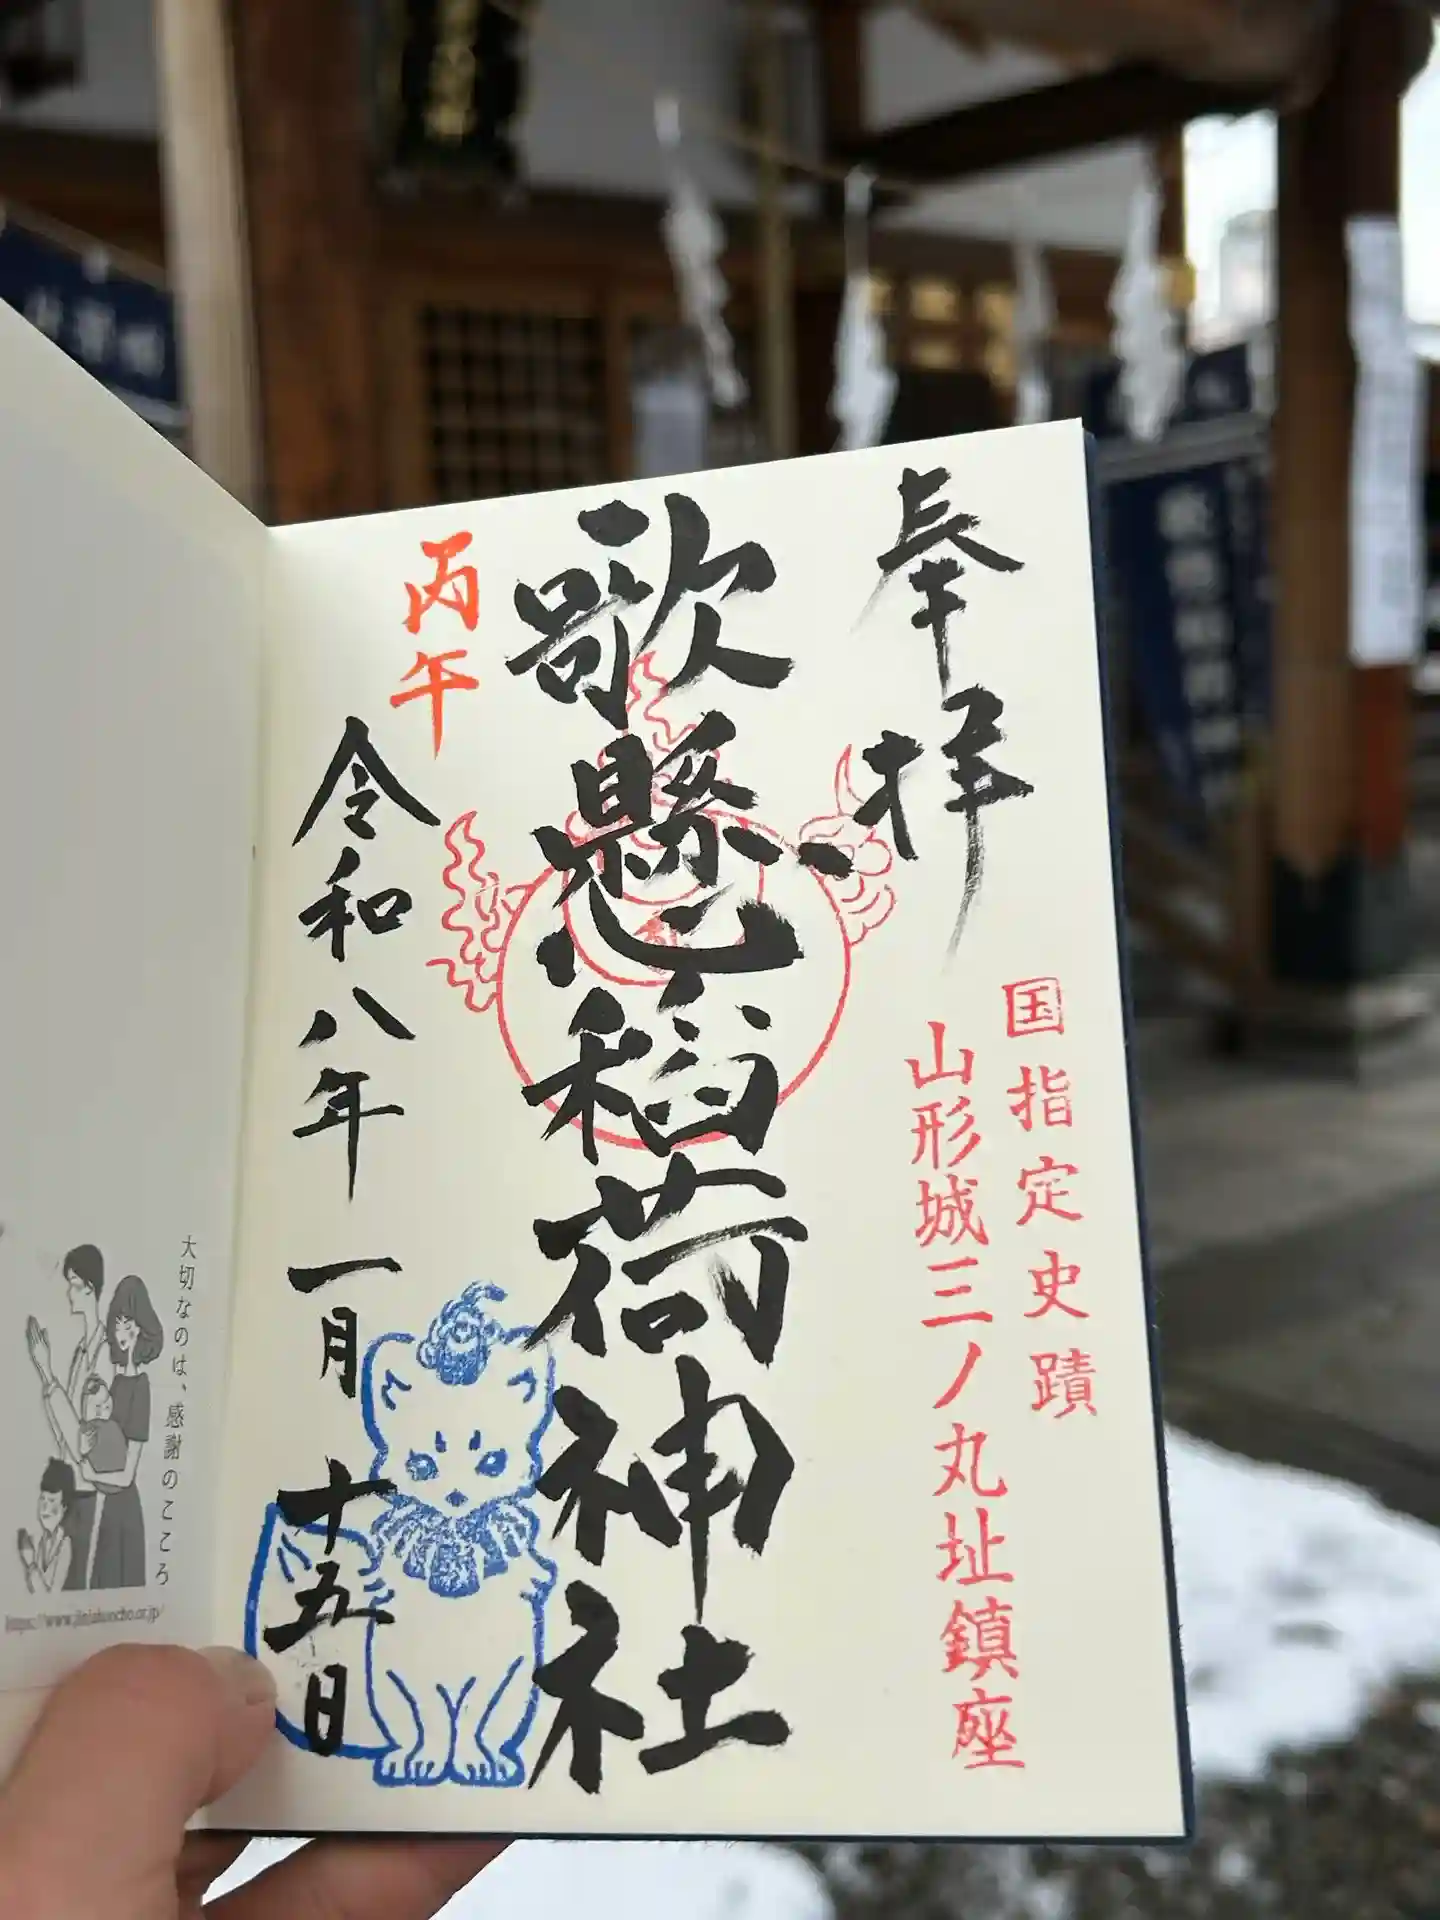 奉拝
国指定史蹟
山形城三ノ丸址鎮座
歌懸稲荷神社
丙午
令和八年一月十五日
大切なのは、感謝のこころ
https://www.jinjahoncho.or.jp/